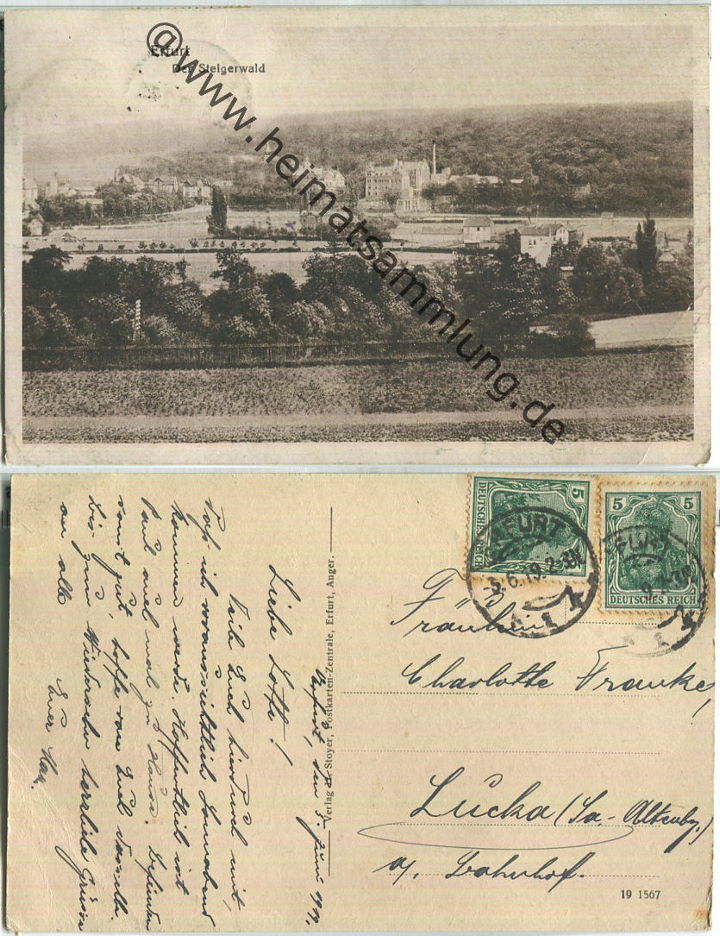 Erfurt
Der Steigerwald
@www.heimatsammlung.de
5 DEUTSCHES REICH
5 5
DEUTSCHES REICH
ERFURT
5.6.19.2-3N
Erfurt, den 5. Juni 1919.
Liebe Lotte!
Teile Euch hierdurch mit,
daß ich voraussichtlich Sonnabend
kommen werde. Hoffentlich ist
Paul auch mal zu Hause. Befinden
sonst gut, hoffe von Euch dasselbe.
Bis zum Wiedersehn herzliche Grüsse
an alle
Euer Max.
Verlag H. Stoyer, Postkarten-Zentrale, Erfurt, Anger.
Fräulein
Charlotte Franke,
Lucka (Sa.-Altenbg.)
a/ Bahnhof.
19 1567